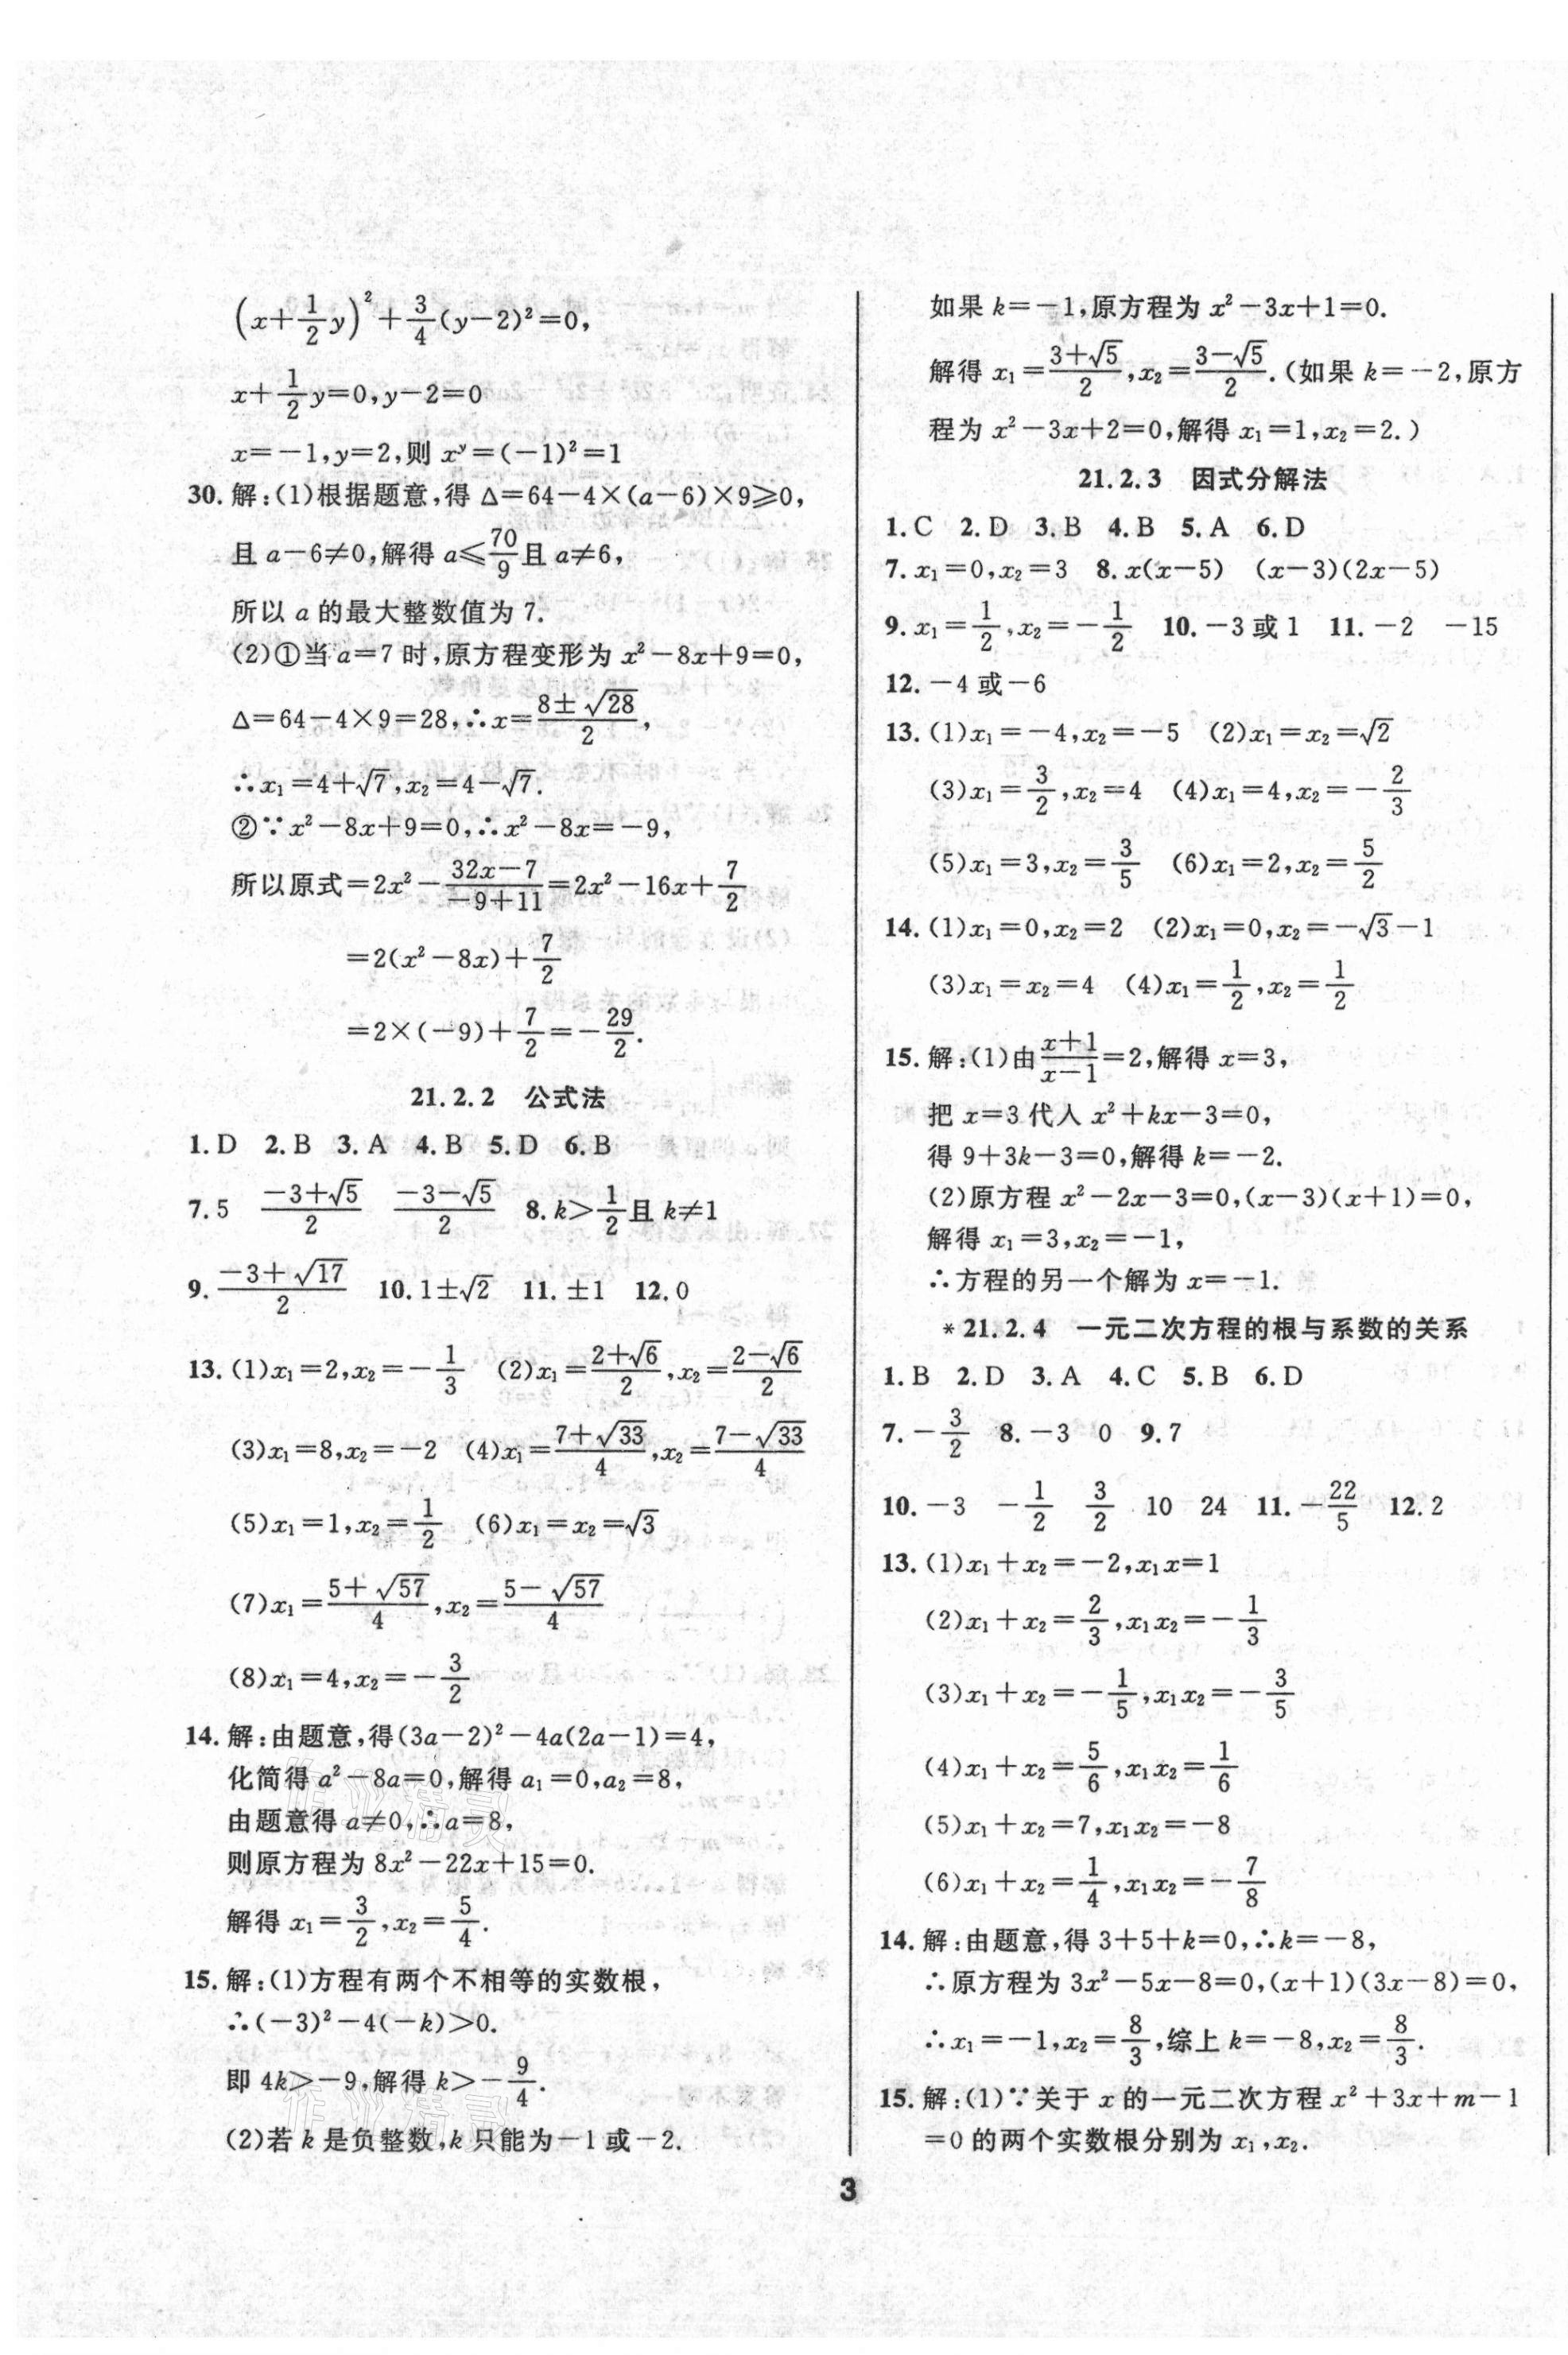 (x+1/2y)²+3/4(y−2)²=0,
x+1/2y=0,y−2=0
x=−1,y=2,则 xʸ=(−1)²=1
30.解:(1)根据题意,得 Δ=64−4×(a−6)×9⩾0,
且 a−6≠0,解得 a⩽70/9且 a≠6,
所以 a 的最大整数值为 7.
(2)①当 a=7 时,原方程变形为 x²−8x+9=0,
Δ=64−4×9=28,∴x=(8±√28)/2,
∴x₁=4+√7,x₂=4−√7.
②∵x²−8x+9=0,∴x²−8x=−9,
所以原式=2x²−(32x−7)/(−9+11)=2x²−16x+7/2
=2(x²−8x)+7/2
=2×(−9)+7/2=−29/2.
21.2.2 公式法
1.D 2.B 3.A 4.B 5.D 6.B
7.5 (−3+√5)/2 (−3−√5)/2 8.k>1/2且 k≠1
9.(−3+√17)/2 10.1±√2 11.±1 12.0
13.(1)x₁=2,x₂=−1/3 (2)x₁=(2+√6)/2,x₂=(2−√6)/2
(3)x₁=8,x₂=−2 (4)x₁=(7+√33)/4,x₂=(7−√33)/4
(5)x₁=1,x₂=1/2 (6)x₁=x₂=√3
(7)x₁=(5+√57)/4,x₂=(5−√57)/4
(8)x₁=4,x₂=−3/2
14.解:由题意,得(3a−2)²−4a(2a−1)=4,
化简得 a²−8a=0,解得 a₁=0,a₂=8,
由题意得 a≠0,∴a=8,
则原方程为 8x²−22x+15=0.
解得 x₁=3/2,x₂=5/4.
15.解:(1)方程有两个不相等的实数根,
∴(−3)²−4(−k)>0.
即 4k>−9,解得 k>−9/4.
(2)若 k 是负整数,k 只能为−1 或−2.
如果 k=−1,原方程为 x²−3x+1=0.
解得 x₁=(3+√5)/2,x₂=(3−√5)/2.(如果 k=−2,原方
程为 x²−3x+2=0,解得 x₁=1,x₂=2.)
21.2.3 因式分解法
1.C 2.D 3.B 4.B 5.A 6.D
7.x₁=0,x₂=3 8.x(x−5) (x−3)(2x−5)
9.x₁=1/2,x₂=−1/2 10.−3 或 1 11.−2 −15
12.−4 或−6
13.(1)x₁=−4,x₂=−5 (2)x₁=x₂=√2
(3)x₁=3/2,x₂=4 (4)x₁=4,x₂=−2/3
(5)x₁=3,x₂=3/5 (6)x₁=2,x₂=5/2
14.(1)x₁=0,x₂=2 (2)x₁=0,x₂=−√3−1
(3)x₁=x₂=4 (4)x₁=1/2,x₂=1/2
15.解:(1)由(x+1)/(x−1)=2,解得 x=3,
把 x=3 代入 x²+kx−3=0,
得 9+3k−3=0,解得 k=−2.
(2)原方程 x²−2x−3=0,(x−3)(x+1)=0,
解得 x₁=3,x₂=−1,
∴方程的另一个解为 x=−1.
*21.2.4 一元二次方程的根与系数的关系
1.B 2.D 3.A 4.C 5.B 6.D
7.−3/2 8.−3 0 9.7
10.−3 −1/2 3/2 10 24 11.−22/5 12.2
13.(1)x₁+x₂=−2,x₁x=1
(2)x₁+x₂=2/3,x₁x₂=−1/3
(3)x₁+x₂=−1/5,x₁x₂=−3/5
(4)x₁+x₂=5/6,x₁x₂=1/6
(5)x₁+x₂=7,x₁x₂=−8
(6)x₁+x₂=1/4,x₁x₂=−7/8
14.解:由题意,得 3+5+k=0,∴k=−8,
∴原方程为 3x²−5x−8=0,(x+1)(3x−8)=0,
∴x₁=−1,x₂=8/3,综上 k=−8,x₂=8/3.
15.解:(1)∵关于 x 的一元二次方程 x²+3x+m−1
=0 的两个实数根分别为 x₁,x₂.
3